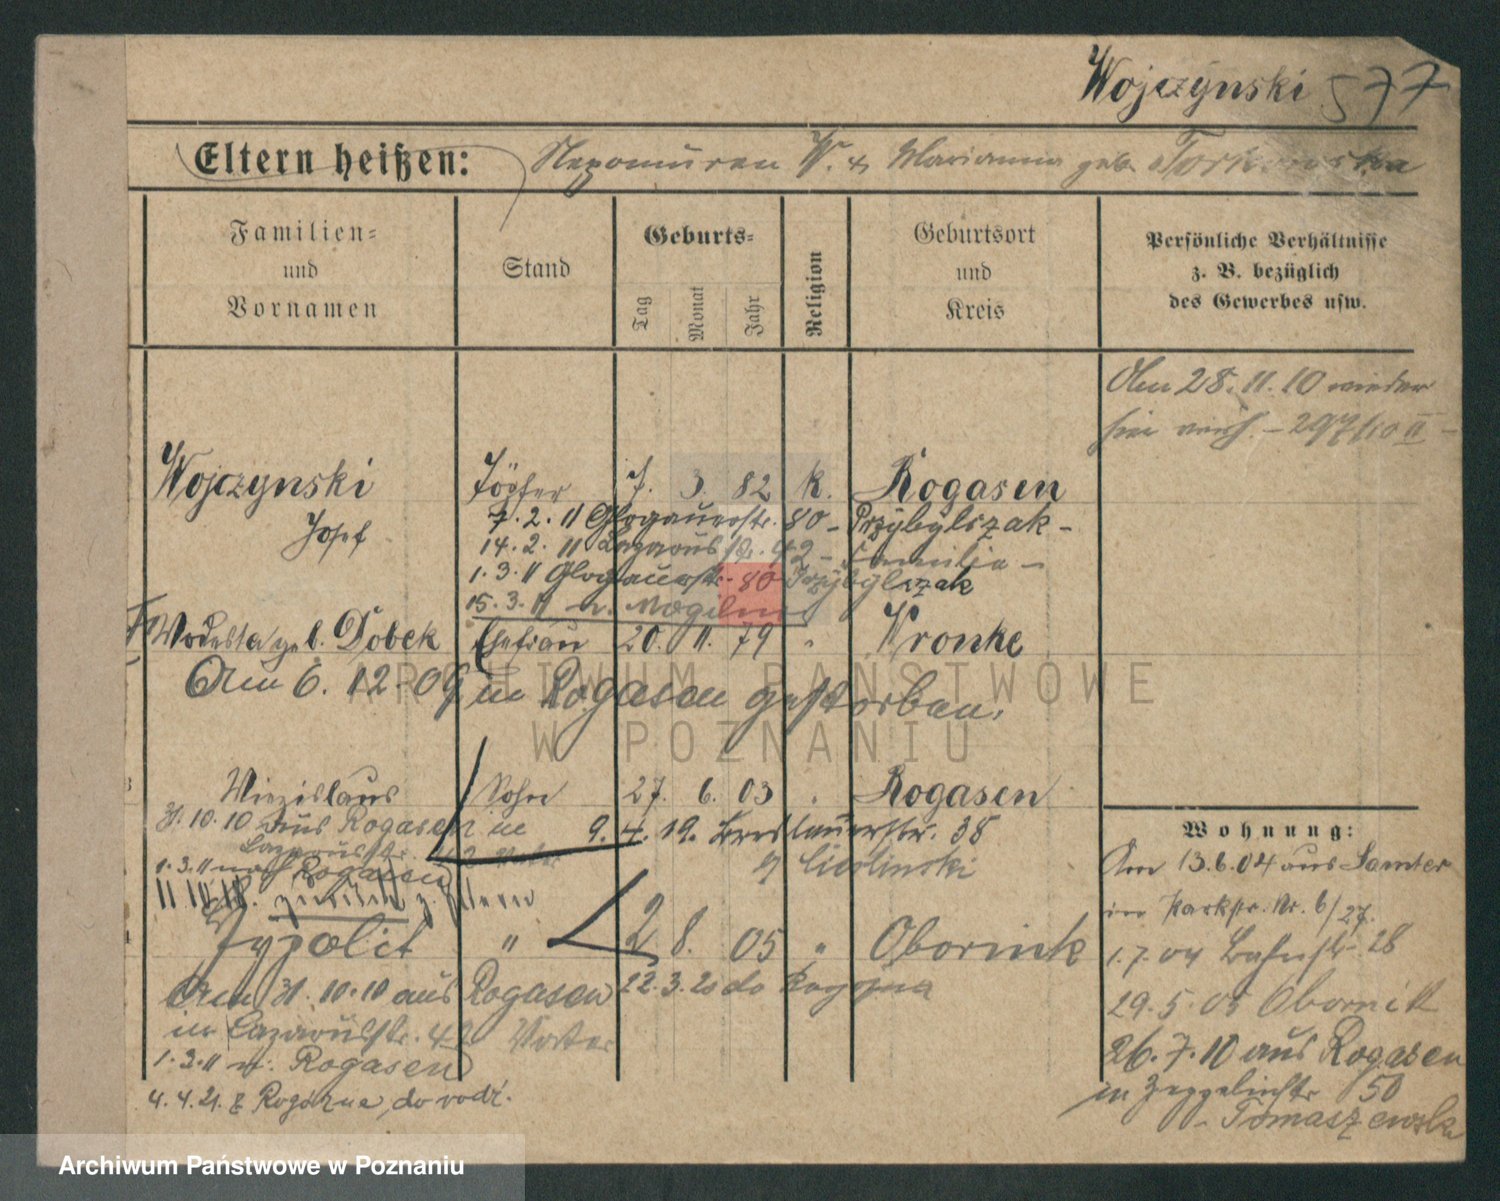 Wojczynski 577
Eltern heißen: Nepomucen W. & Marianna geb.
Familien-
und
Vornamen
Stand
Geburts-
Tag
Monat
Jahr
Religion
Geburtsort
und
Kreis
Persönliche Verhältnisse
z. B. bezüglich
des Gewerbes usw.
28.11.10 wieder
297/10 II
Wojczynski Töpfer 7. 3. 82 K. Rogasen
Josef
7.2.11 Glogauerstr. 80 - Przybylszak -
14.2.11 Lazarusstr. 42 - Familie -
1.3.11 Glogauerstr. 80 Przybylszak
15.3.11 n. Mogilno
Modesta geb. Dobek Ehefrau 20. 11. 79 " Wronke
Am 6.12.09 in Rogasen gestorben.
Wienzislaus Sohn 27. 6. 03 " Rogasen
31.10.10 aus Rogasen in
Lazarusstr. 42 Vater
9.4.19. Breslauerstr. 38
1.3.11 nach Rogasen
11.10.18. zurück z. Eltern
Hypolit " 2 8. 05 " Obornik
Am 31.10.10 aus Rogasen
in Lazarusstr. 42 Vater
22.3.20 do Rogozna
1.3.11 n. Rogasen
4.4.21. z Rogozna, do rodz.
Wohnung:
Am 13.6.04 aus Samter
in Parkstr. Nr. 6/27.
1.7.04 Bahnstr. 28
29.5.05 Obornik
26.7.10 aus Rogasen
in Zeppelinstr 50
- Tomaszewska
ARCHIWUM PAŃSTWOWE
W POZNANIU
Archiwum Państwowe w Poznaniu